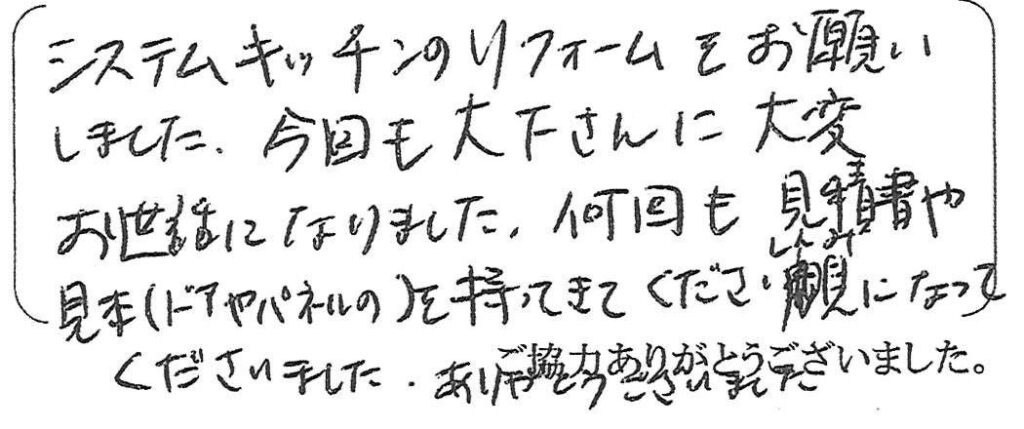 システムキッチンのリフォームをお願い
しました。今回も大下さんに大変
お世話になりました。何回も見積書や
見本(ドアやパネルの)を持ってきてくださり親しんみになって
くださいました。ありがとうございました
ご協力ありがとうございました。